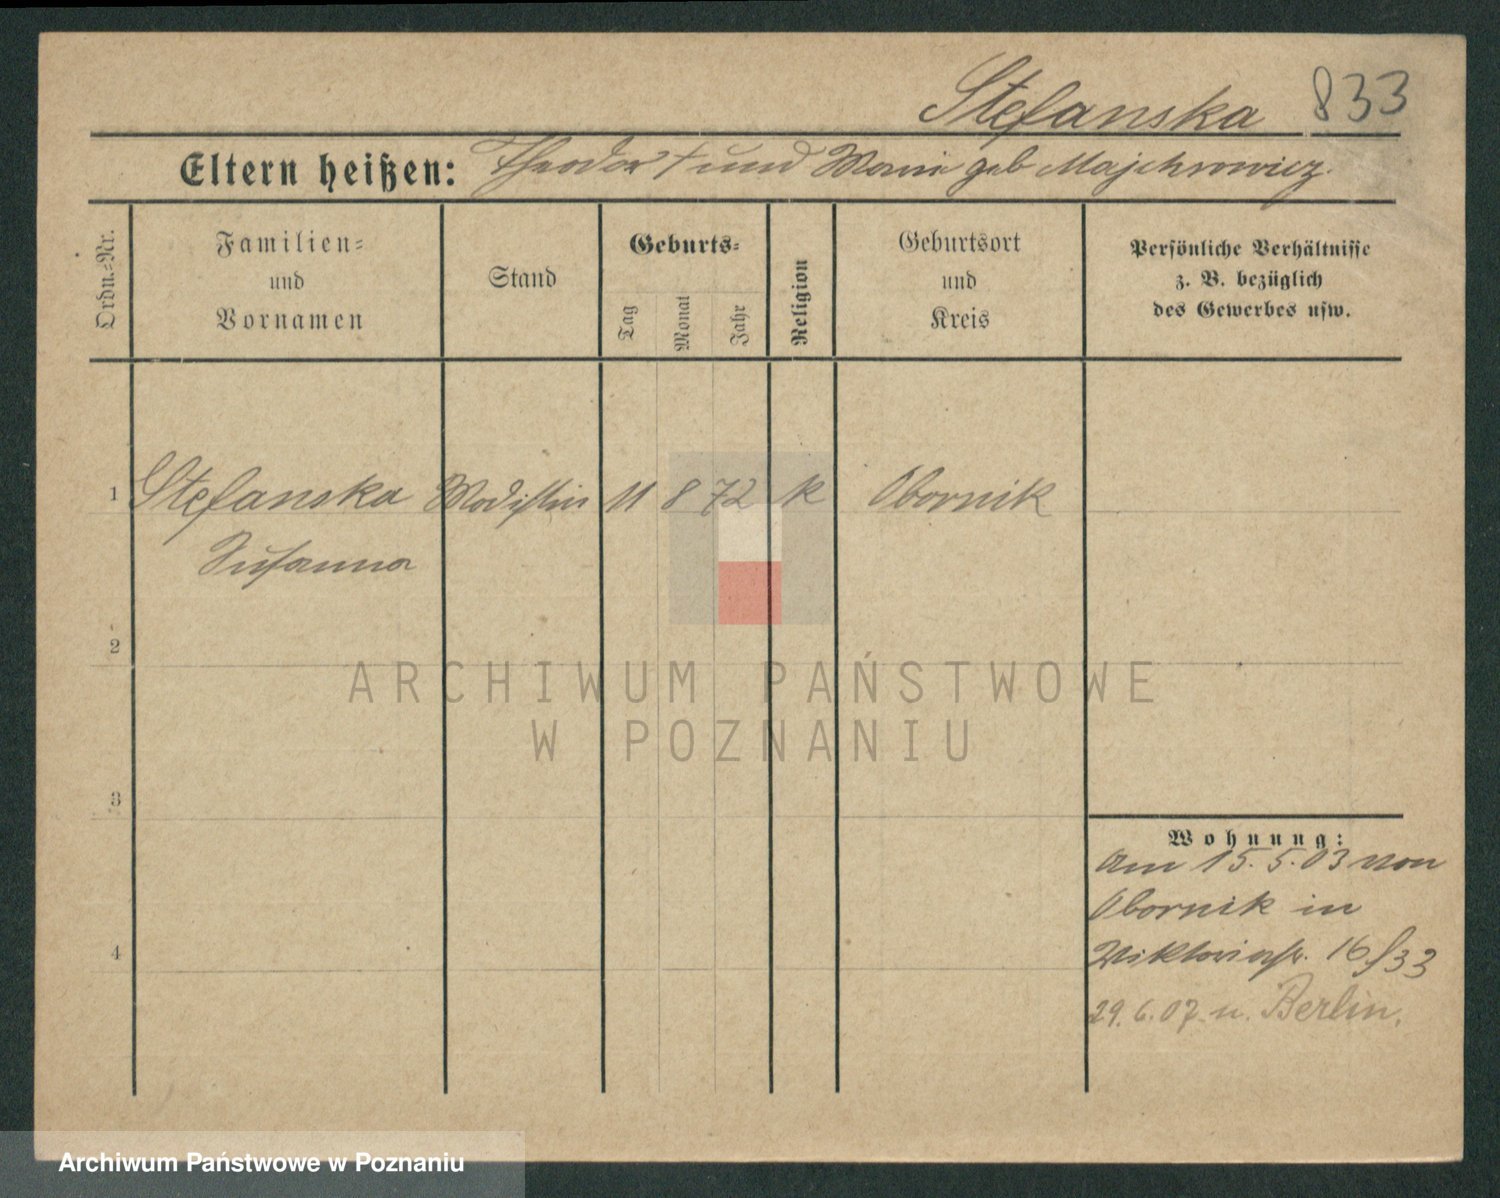 Stefanska 833
Eltern heißen: Theodor † und Marie geb Majchrowicz.
Ordn.=Nr.
Familien=
und
Vornamen
Stand
Geburts=
Tag
Monat
Jahr
Religion
Geburtsort
und
Kreis
Persönliche Verhältnisse
z. B. bezüglich
des Gewerbes usw.
1 Stefanska Modistin 11 8 72 k Obornik
Susanna
2
3
4
Wohnung:
Am 15. 5. 03 von
Obornik in
Viktoriastr. 16/33
29. 6. 07. n. Berlin.
ARCHIWUM PAŃSTWOWE
W POZNANIU
Archiwum Państwowe w Poznaniu